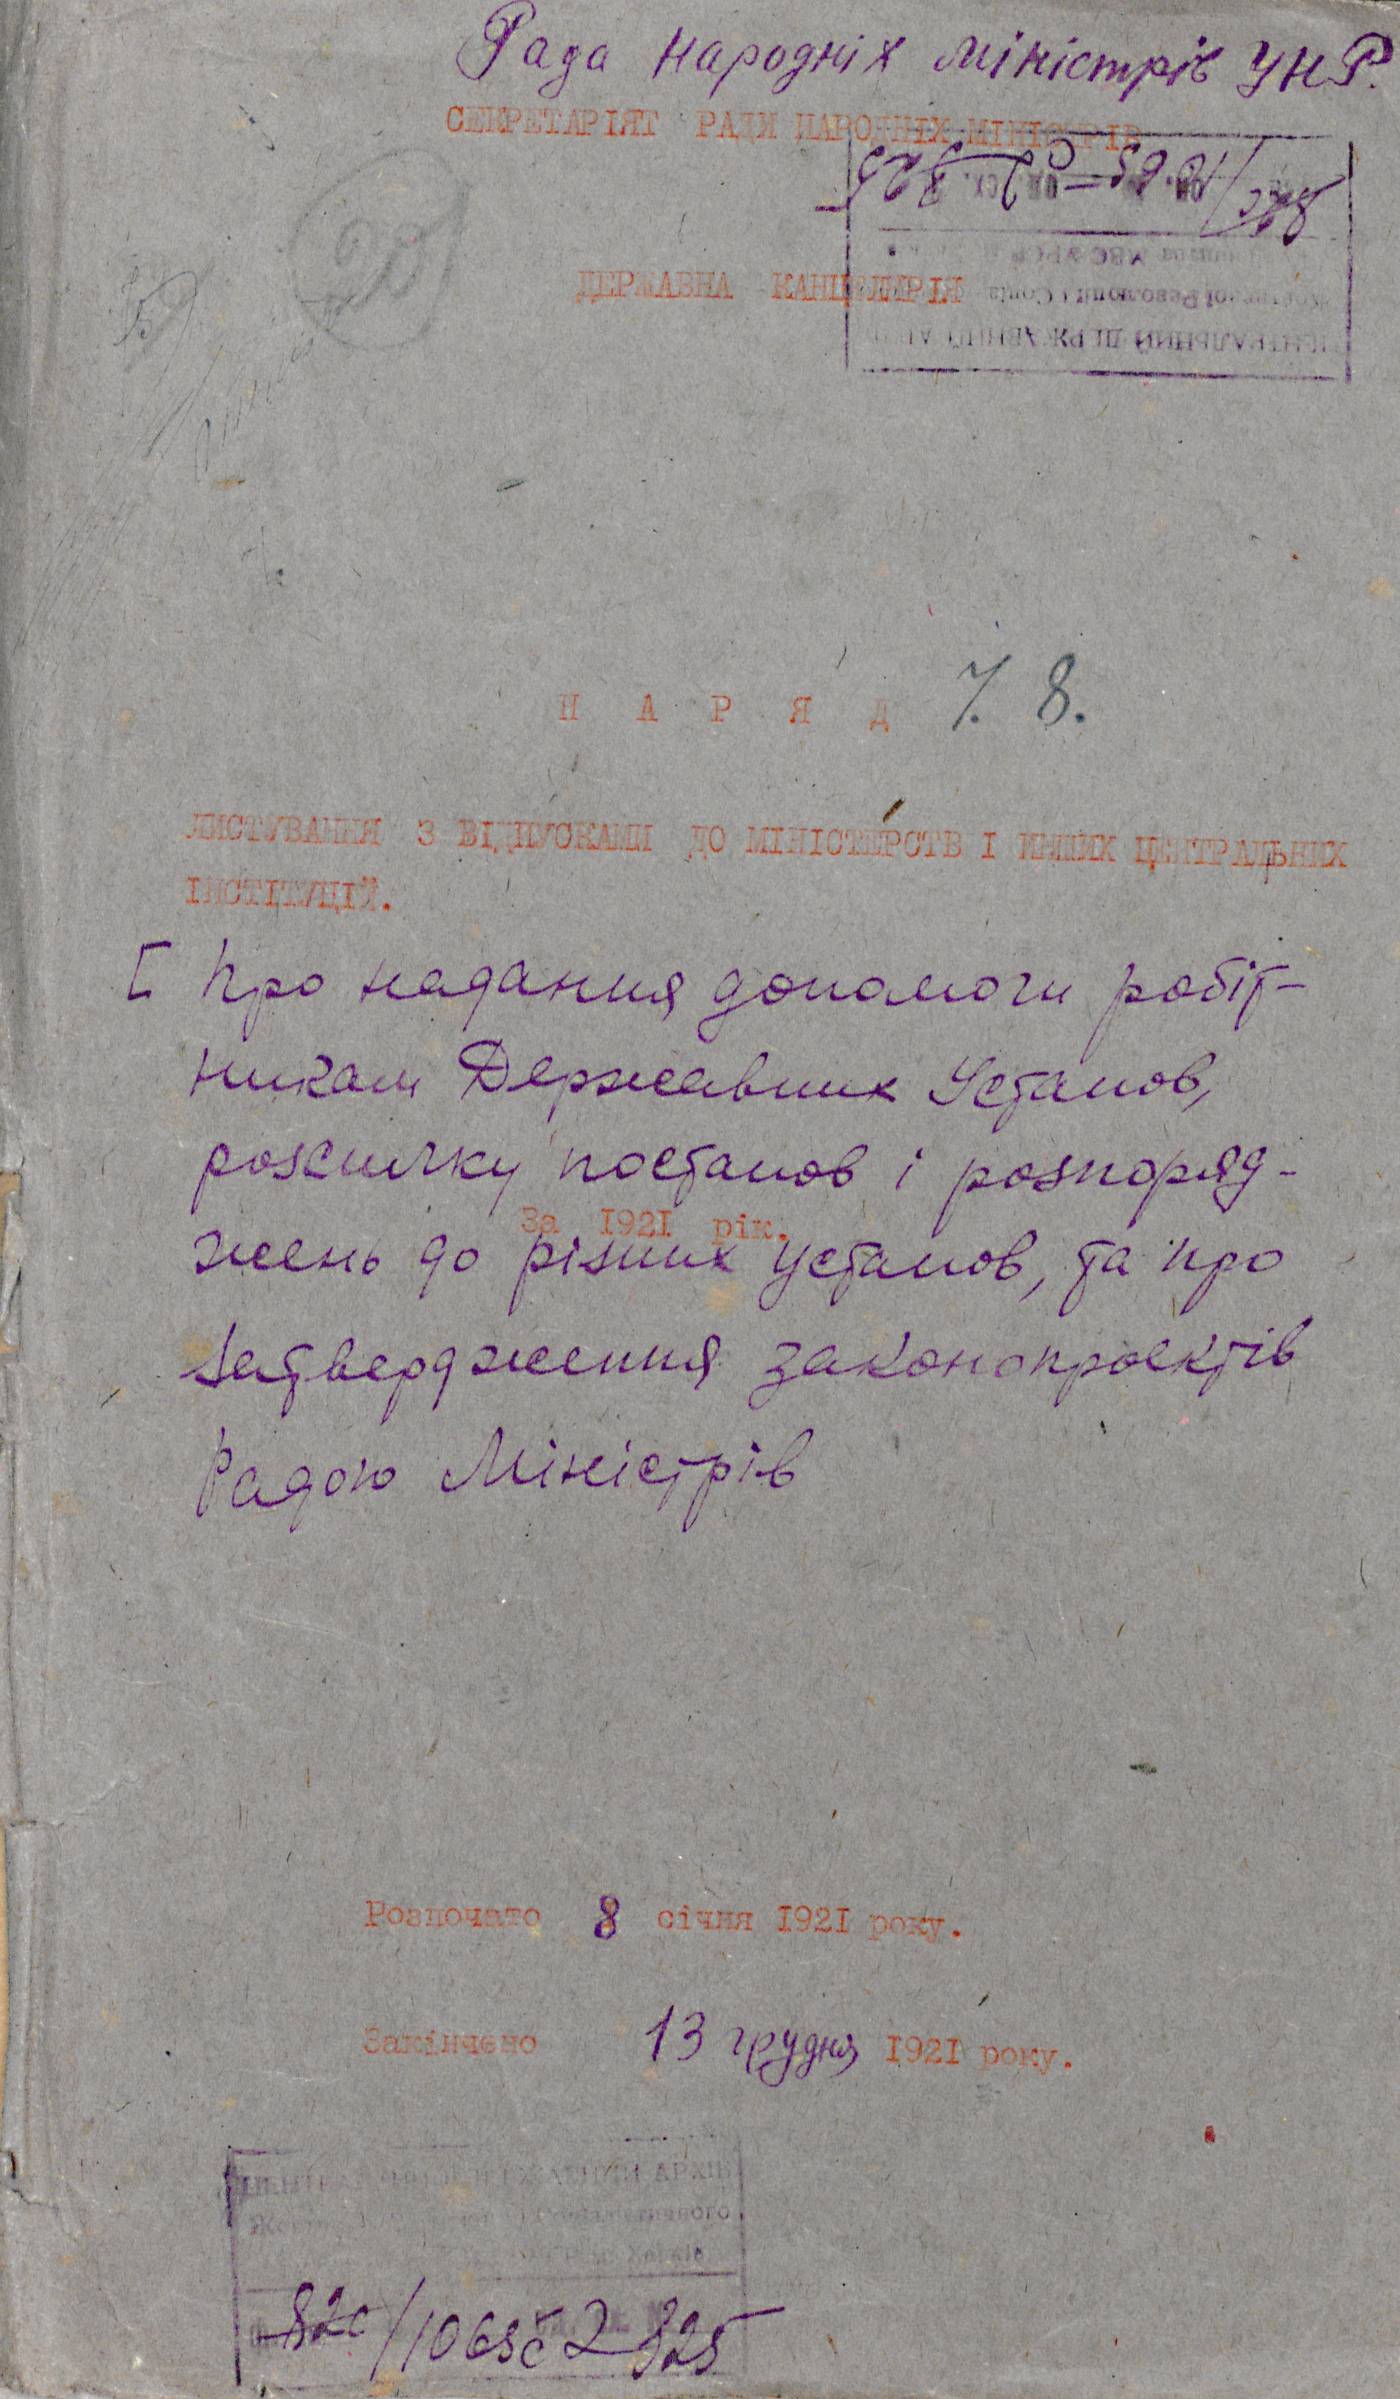 Рада Народніх Міністрів УНР.
СЕКРЕТАРІЯТ РАДИ НАРОДНІХ МІНІСТРІВ
ДЕРЖАВНА КАНЦЕЛЯРІЯ
Н А Р Я Д Ч. 8.
ЛИСТУВАННЯ З ВІДПУСКАМИ ДО МІНІСТЕРСТВ І ИНШИХ ЦЕНТРАЛЬНИХ
ІНСТІТУЦІЙ.
[ Про надання допомоги робіт-
никам Державних Установ,
розсилку постанов і розпоряд-
За 1921 рік.
жень до різних установ, та про
затвердження законопроектів
Радою Міністрів
Розпочато 8 січня 1921 року.
Закінчено 13 грудня 1921 року.
ЦЕНТРАЛЬНИЙ ДЕРЖАВНИЙ АРХІВ
/1065с 2 325